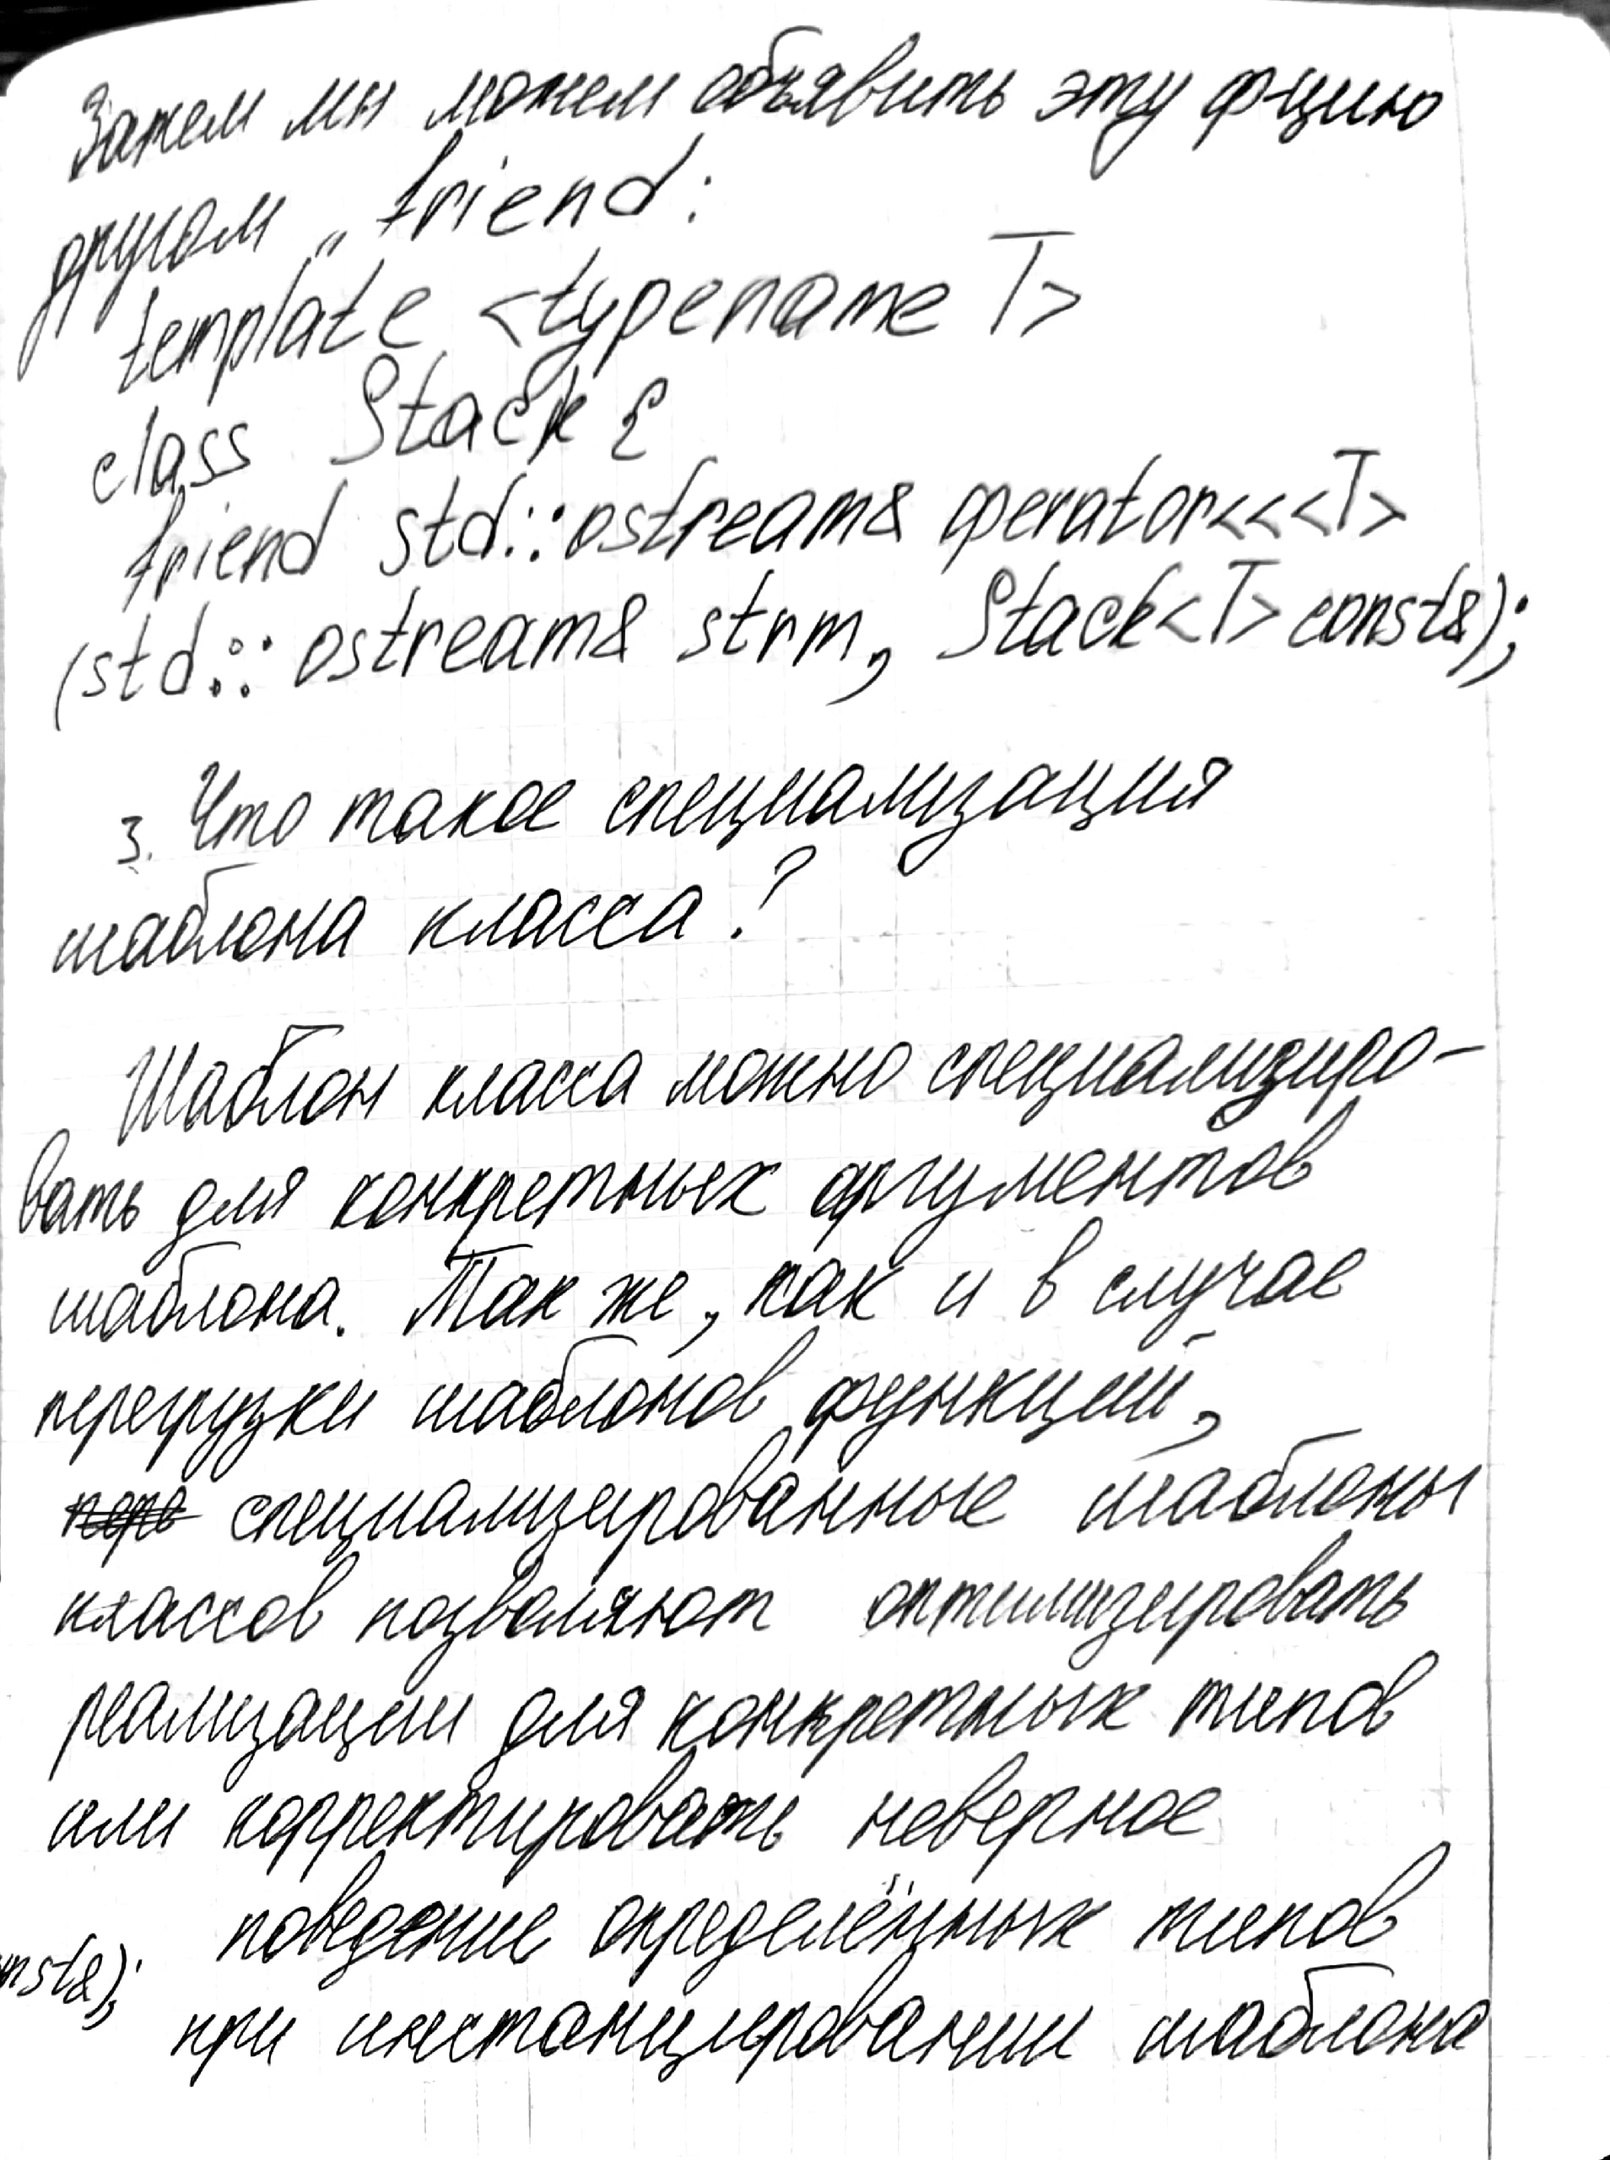 Затем мы можем объявить эту фцию
другом „ friend:
template <typename T>
class Stack {
friend std::ostream& operator<<<T>
(std::ostream& strm, Stack<T> const&);
3. Что такое специализация
шаблона класса?
Шаблон класса можно специализиро-
вать для конкретных аргументов
шаблона. Так же, как и в случае
перегрузки шаблонов функций,
специализированные шаблоны
классов позволяют оптимизировать
реализации для конкретных типов
или корректировать неверное
поведение определённых типов
nst&);
при инстанцировании шаблона